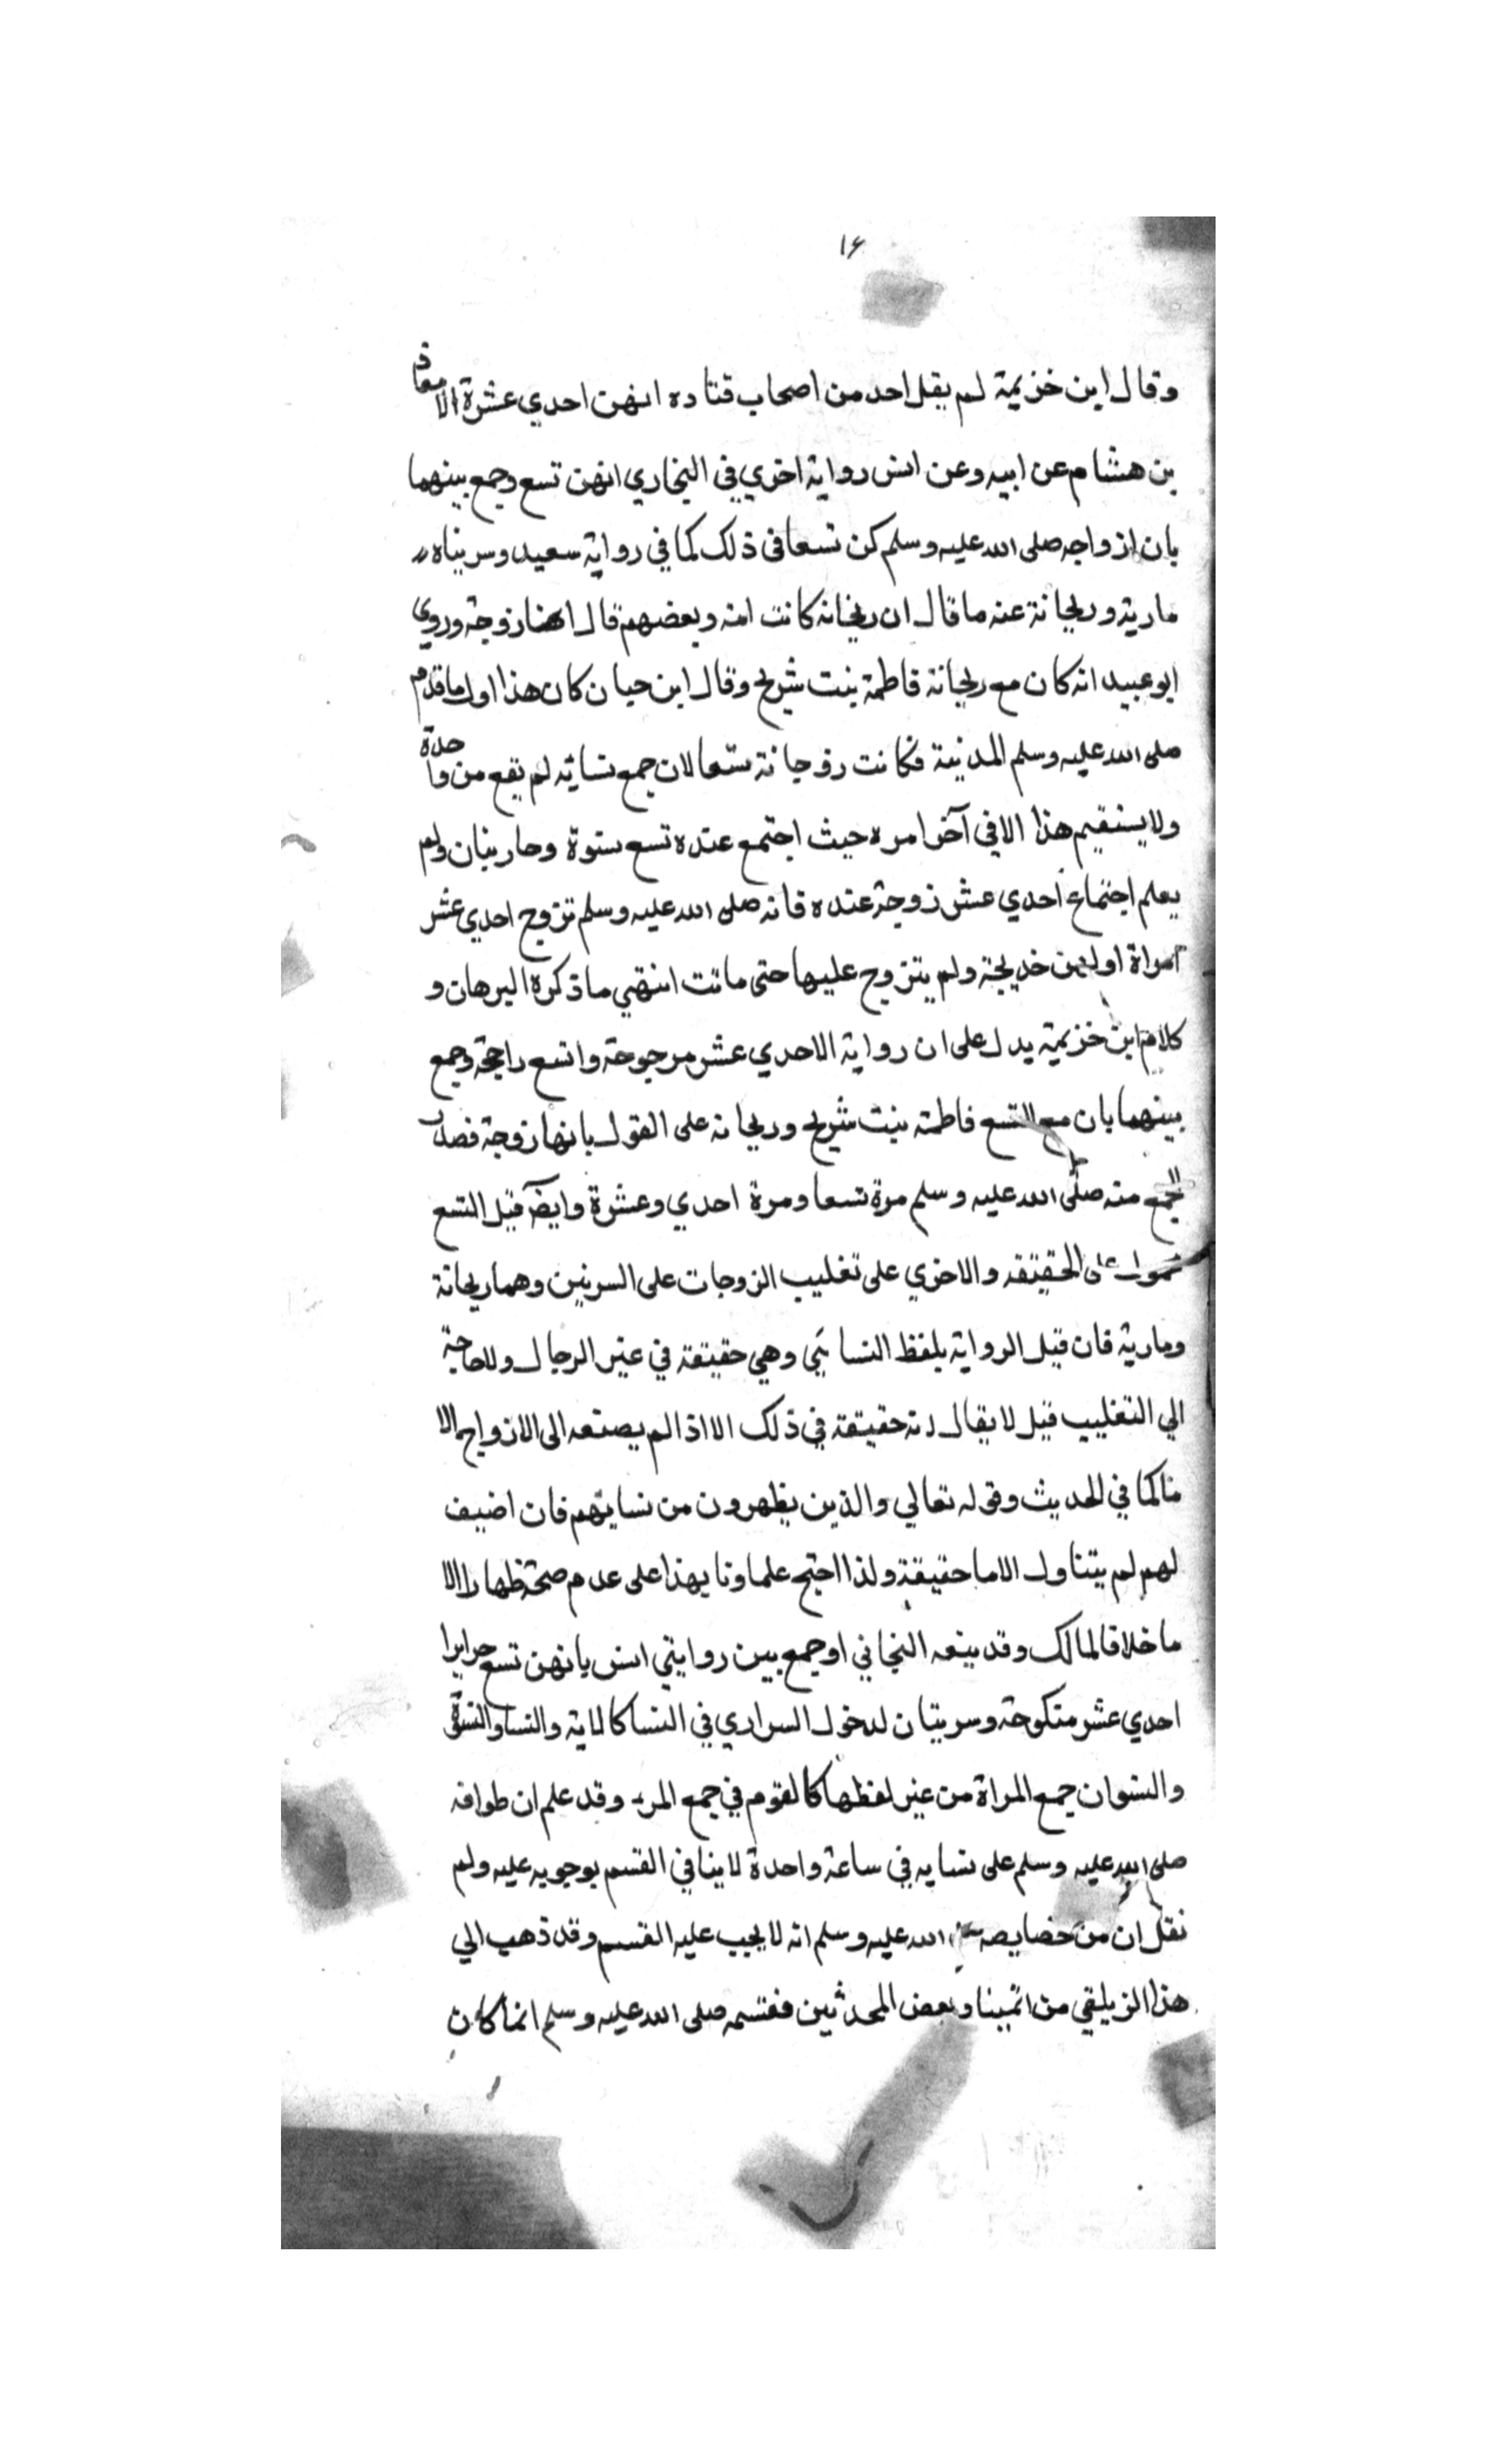 ١۶
وقال ابن خزيمة لم يقل احد من اصحاب قتاده انهن احدي عشرة الا معاذ
بن هشام عن ابيه وعن انس رواية اخري في البخاري انهن تسع وجمع بينهما
بان ازواجه صلى الله عليه وسلم كن تسعا في ذلك كما في رواية سعيد وسريتاه
مارية وريحانة عنه ما قال ان ريحانه كانت امه وبعضهم قال انها زوجة وروي
ابو عبيد انه كان مع ريحانة فاطمة بنت شريح وقال ابن حيان كان هذا اول ما قدم
صلى الله عليه وسلم المدينة فكانت زوجاته تسعا لان جمع نسائه لم يقع من واحدة
ولا يستقيم هذا الا في آخر امره حيث اجتمع عنده تسع نسوة وجاريتان ولم
يعلم اجتماع احدي عشر زوجة عنده فانه صلى الله عليه وسلم تزوج احدي عشر
امراة اولهن خديجة ولم يتزوج عليها حتى ماتت انتهي ما ذكرة البرهان و
كلام ابن خزيمة يدل على ان رواية الاحدي عشر مرجوحة والتسع راجحة وجمع
بينهما بان مع التسع فاطمة بنت شريح وريحانه على القول بانها زوجة فصدر
الجمع منه صلى الله عليه وسلم مرة تسعا ومرة احدي وعشرة وايضا قيل التسع
على الحقيقه والاخري على تغليب الزوجات على السريتين وهما ريحانة
ومارية فان قيل الرواية بلفظ النسا وهي حقيقة في غير الرجال ولا حاجة
الي التغليب قيل لا يقال نه حقيقة في ذلك الا اذا لم يصنعه الى الازواج الا
منا كما في الحديث وقوله تعالي والذين يظهرون من نسايهم فان اضيف
لهم لم يتناول الاما حقيقة ولذا احتج علماونا بهذا على عدم صحة ظهار الا
ما خلافا لمالك وقد بينعه البخاني او جمع بين روايتي انس بانهن تسع حرايرا
احدي عشر منكوحة وسريتان لدخول السراري في النسا كالاية والنسا والنسوة
والنسوان جمع المراة من غير لفظها كالقوم في جمع المرء وقد علم ان طوافه
صلى الله عليه وسلم على نسايه في ساعة واحدة لا ينافي القسم بوجوبه عليه ولم
نقل ان من خصايصه صلى الله عليه وسلم انه لا يجب عليه القسم وقد ذهب الي
هذا الزيلقي من ائمتنا وبعض المحدثين فقسمه صلى الله عليه وسلم انما كان